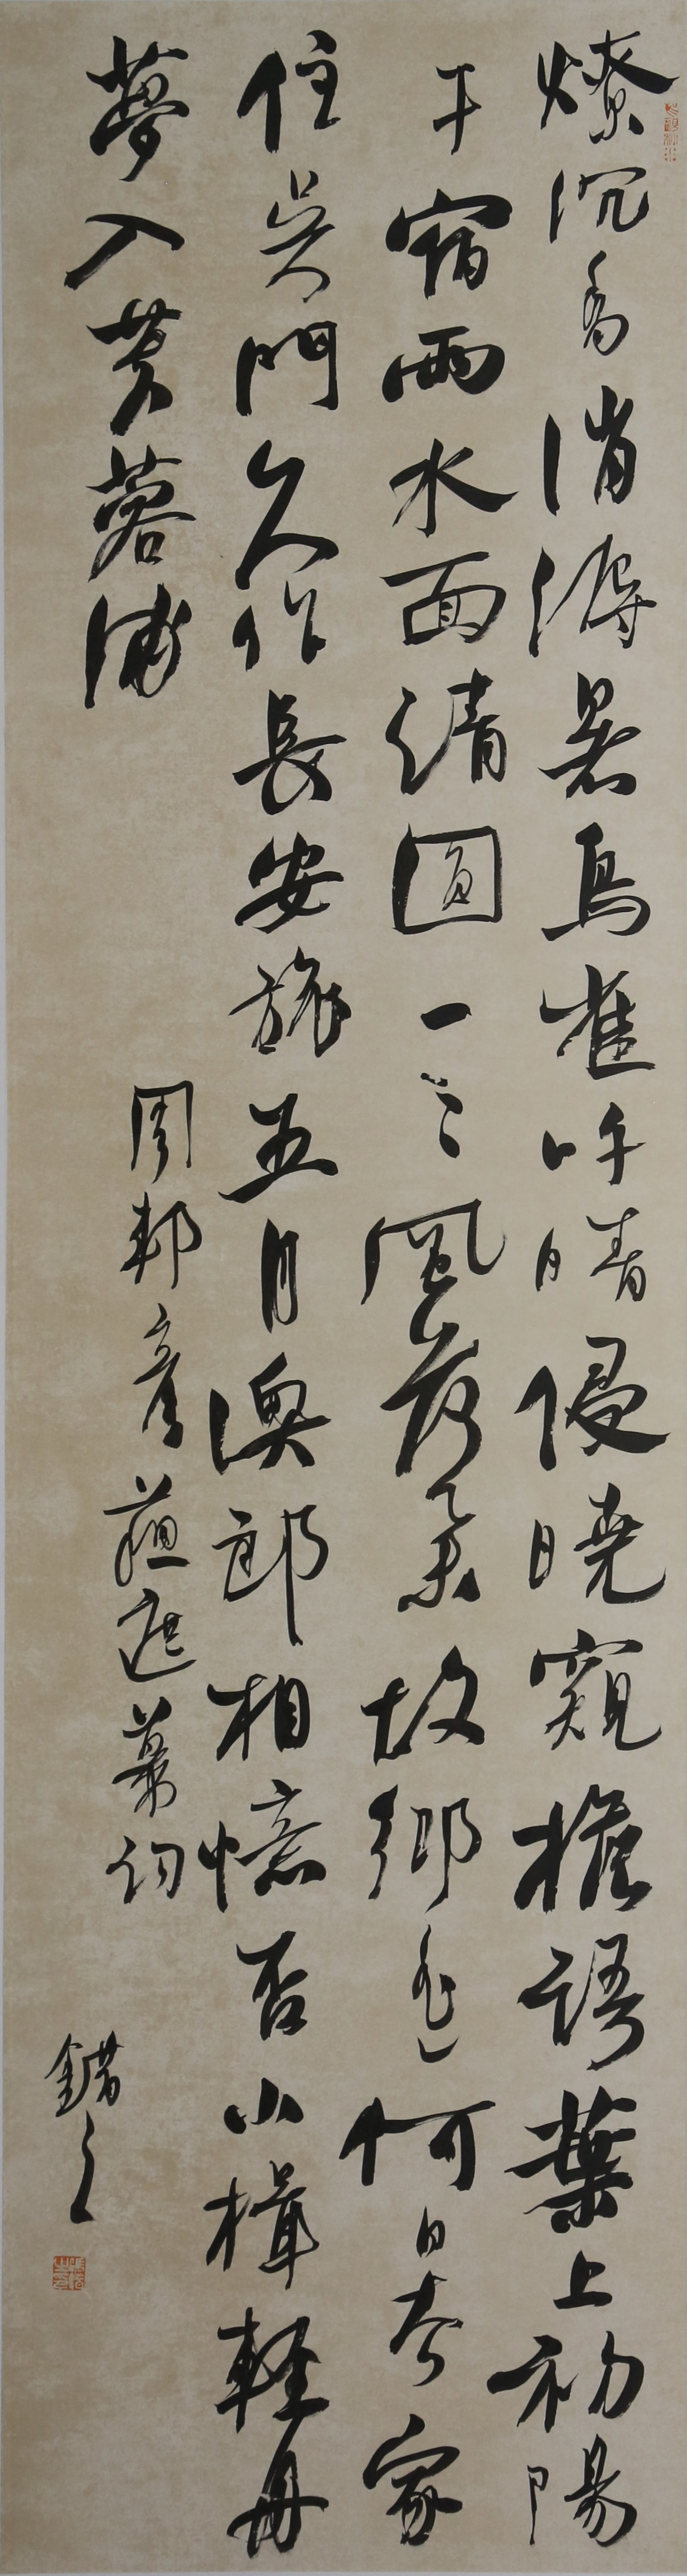 燎沉香消溽暑鳥雀呼晴侵曉窺檐語葉上初陽
干宿雨水面清圓一〻風荷舉故鄉遙何日去家
住吳門久作長安旅五月漁郎相憶否小楫輕舟
夢入芙蓉浦
周邦彥蘇遮幕詞